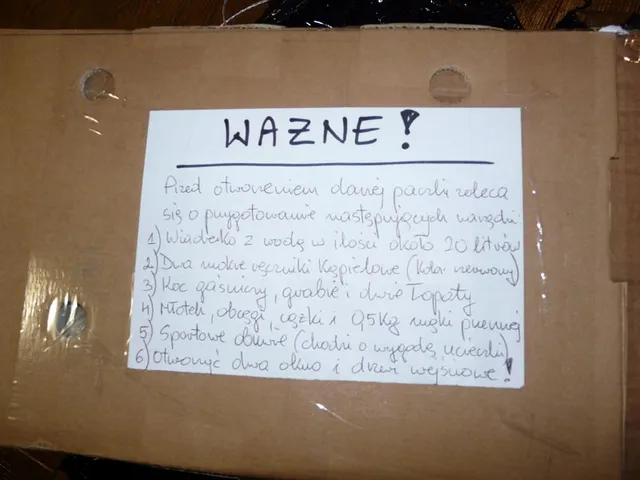 WAZNE!
Przed otworzeniem danej paczki zaleca
się o przygotowanie następujących narzędzi
1) Wiaderko z wodą w ilości około 20 litrów
2) Dwa mokre ręczniki kąpielowe (kolor nerwowy)
3) Koc gaśniczy, grabie i dwie łopaty
4) Młotek, obcęgi, ciężki i 0,5 kg mąki pszennej
5) Sportowe obuwie (chodzi o wygodę ucieczki)
6) Otworzyć dwa okno i drzwi wejsiowe!